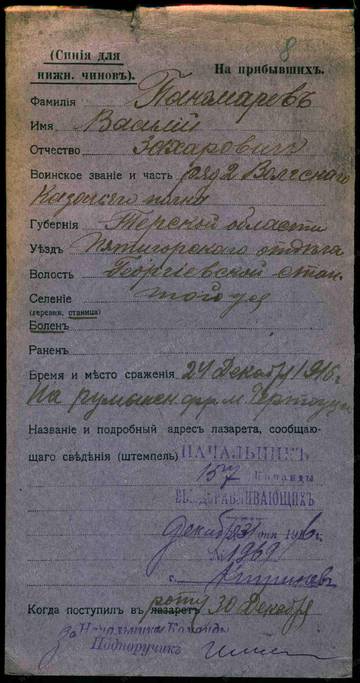 8
(Синія для
нижн. чиновъ).
На прибывшихъ.
Фамилія Панамаревъ
Имя Василій
Отчество Захаровичъ
Воинское званіе и часть 2 Волгскаго
Казачьяго полка
Губернія Терской области
Уѣздъ Пятигорскаго отдѣла
Волость Георгіевской стан.
Селеніе той
(деревня, станица)
Боленъ
Раненъ
Время и мѣсто сраженія 24 Декабря 1916 г.
На румынск.
Названіе и подробный адресъ лазарета, сообщаю-
щаго свѣдѣнія (штемпель)
НАЧАЛЬНИКЪ
157 Команды
ВЫЗДОРАВЛИВАЮЩИХЪ
Декабря 31 дня 1916 г.
№ 1969
г. Кишиневъ
Когда поступилъ въ лазаретъ роту 30 Декабря
За Начальника Команды
Подпоручикъ